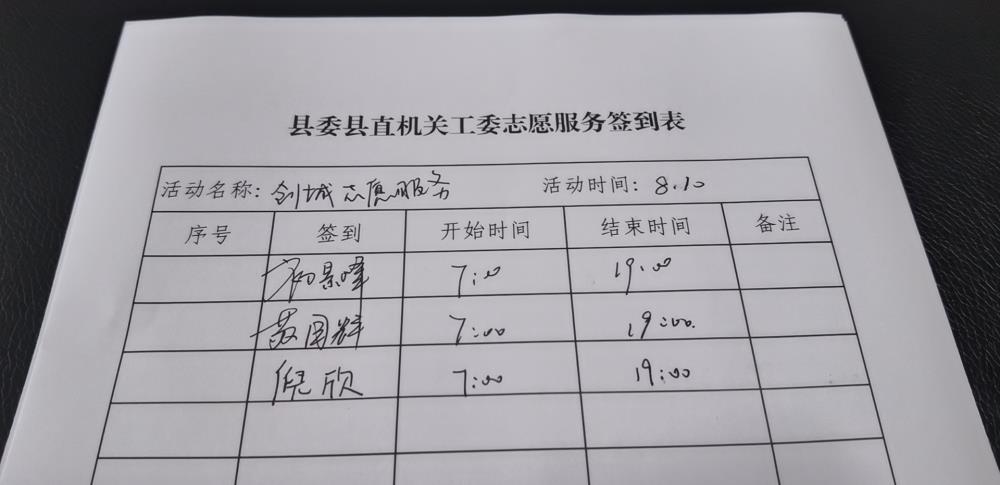 县委县直机关工委志愿服务签到表
活动名称: 创城志愿服务 活动时间: 8.10
序号 签到 开始时间 结束时间 备注
景峰 7:00 19:00
黄国辉 7:00 19:00
倪欣 7:00 19:00